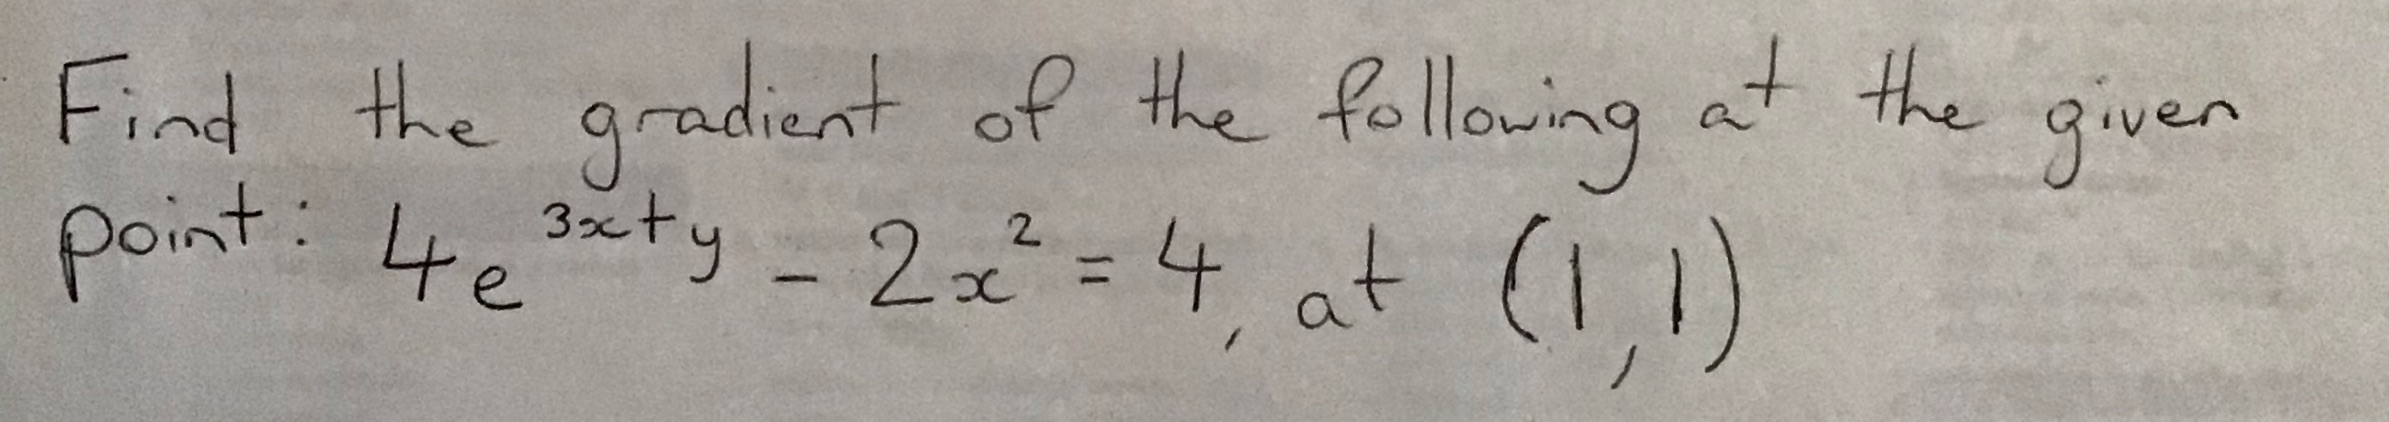 Find the gradient of the following at the given
point: 4e^{3x+y} - 2x² = 4, at (1,1)